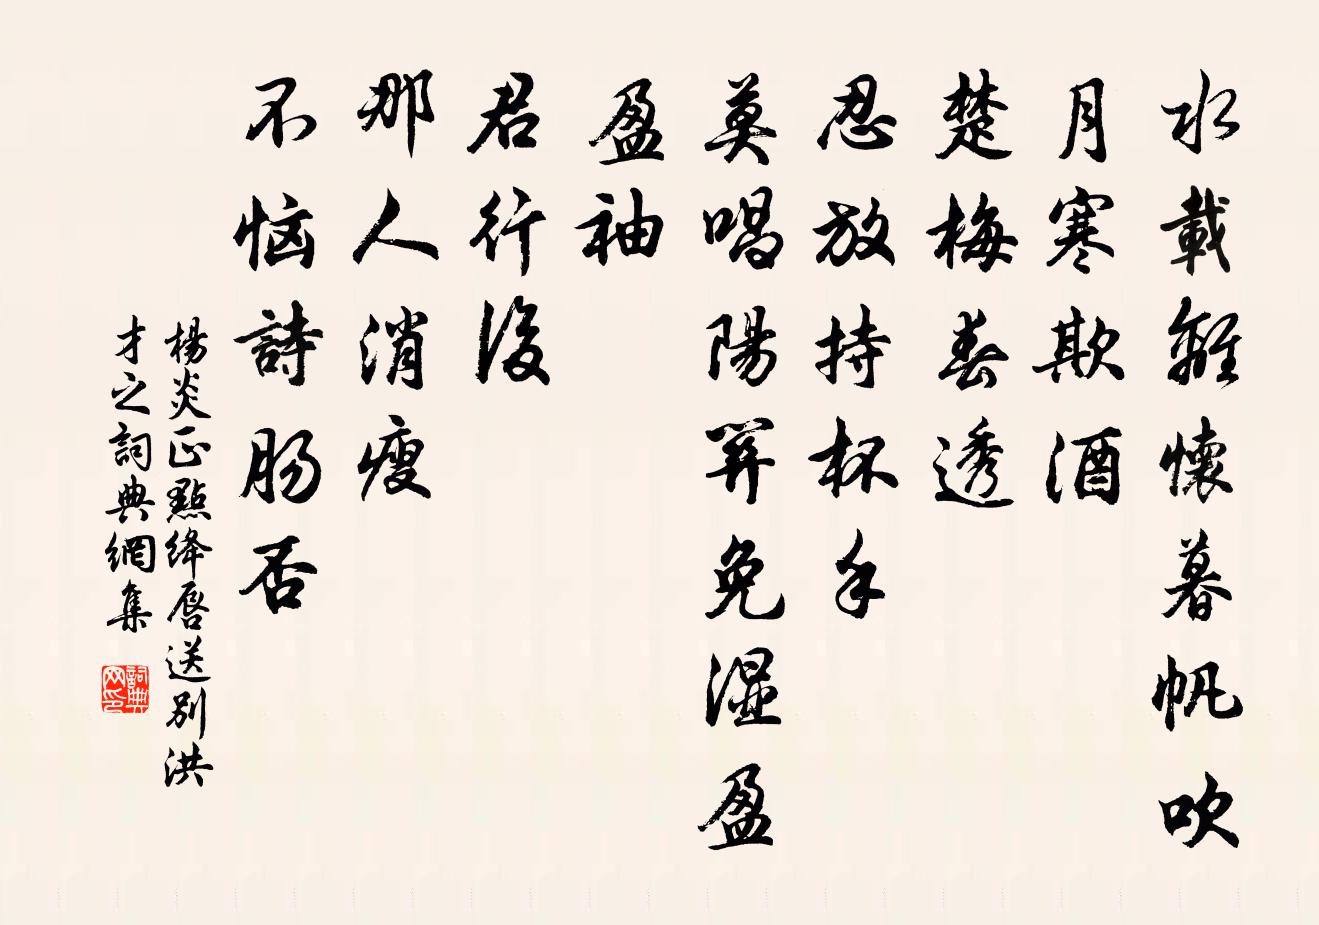 水載離懷暮帆吹
月寒欺酒
楚梅春透
忍放持杯手
莫唱陽關免濕盈
盈袖
君行後
那人消瘦
不恼詩肠否
楊炎正點绛唇送别洪
才之詞典網集
詞典
网印